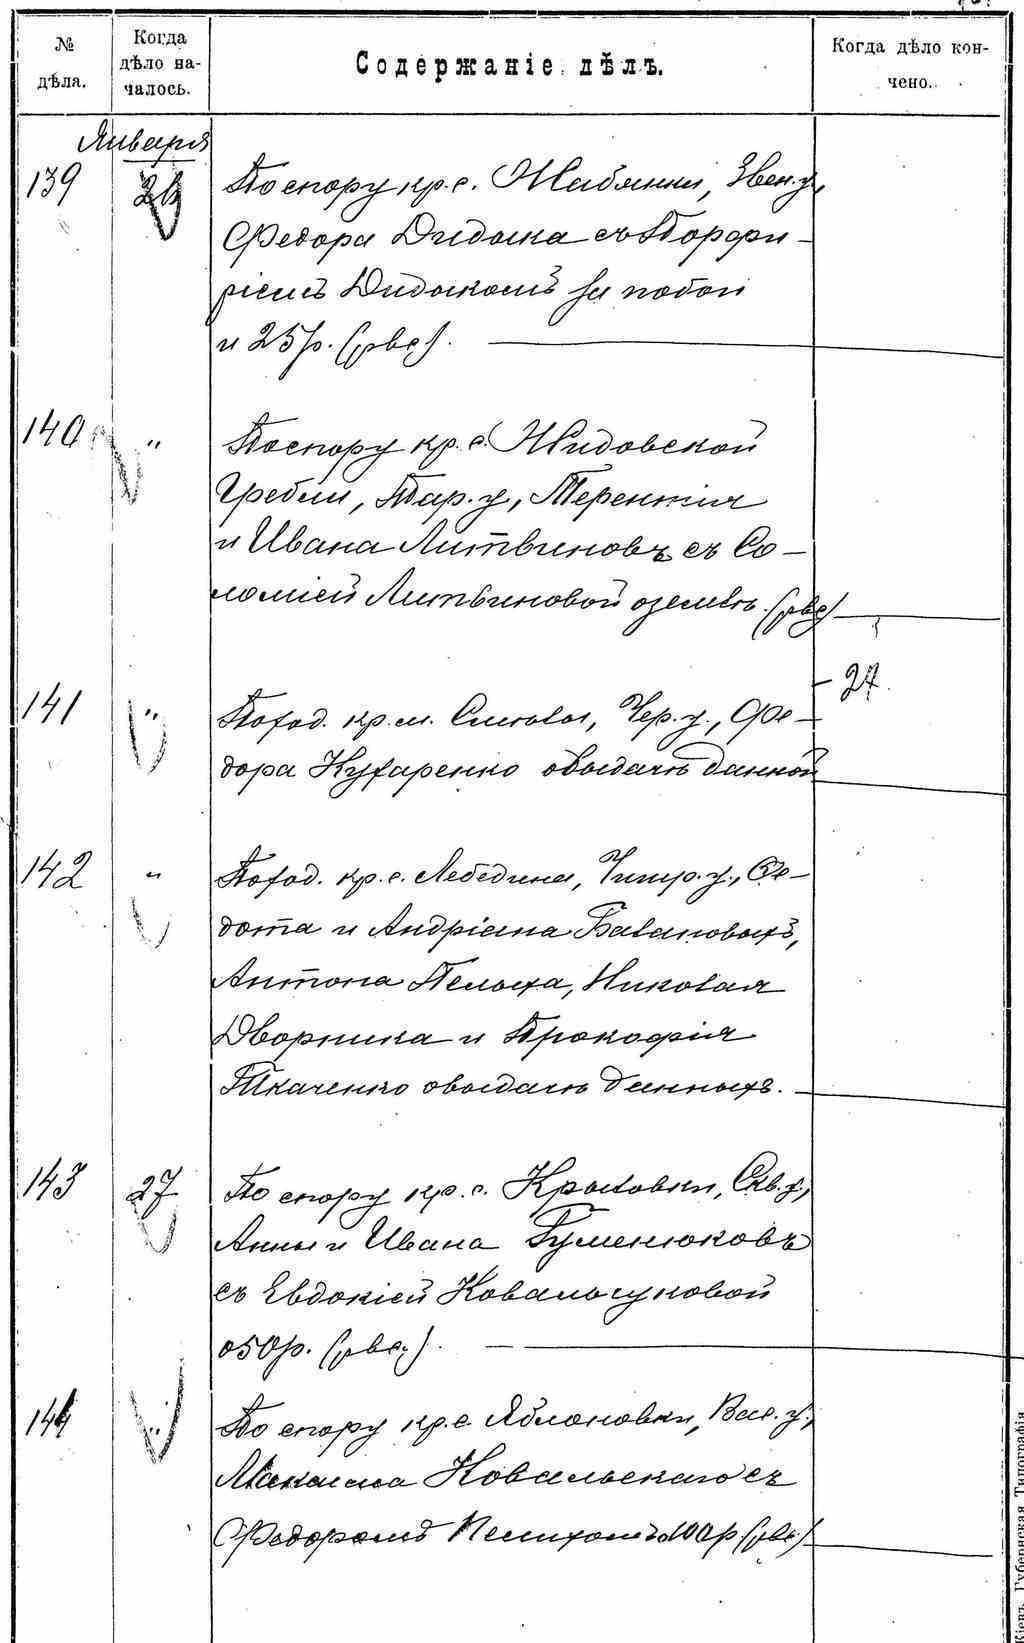 № дѣла.
Когда дѣло началось.
Содержаніе дѣлъ.
Когда дѣло кончено.
Января
139
26
По спору кр. с. Жабянки, Звен. у.,
Федора Дидыка съ Порфи-
ріемъ Дидыкомъ за побои
и 25 р. (рвс).
140
"
По спору кр. с. Жидовской
Гребли, Тар. у., Терентія
и Ивана Литвиновъ съ Со-
ломіей Литвиновой о землѣ. (рвс)
141
"
По ход. кр. м. Смѣлы, Чер. у., Фе-
дора Кухаренко о выдачѣ данной
27.
142
"
По ход. кр. с. Лебедина, Чигир. у., Фе-
дота и Андріана Балановыхъ,
Антона Пелыха, Николая
Дворника и Прокофія
Ткаченко о выдачѣ данныхъ.
143
27
По спору кр. с. Крыловки, Скв. у.,
Анны и Ивана Гуменюковъ
съ Евдокіей Ковальчуковой
о 50 р. (рвс.).
144
"
По спору кр. с. Яблоновки, Вас. у.,
Максима Ковальскаго съ
Федоромъ 100 р (рвс.)
Кіевъ. Губернская Типографія